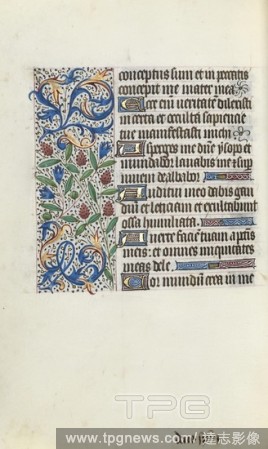 conceptus sum et in peccatis
concepit me mater mea
Ecce enī veritatem dilexisti
incerta et occulta sapiencie
tue manifestasti michi
Asperges me dñe ysopo et
mundabor lavabis me et sup
nivem dealbabor
Auditui meo dabis gau
dium et leticiam et exultabunt
ossa humiliata
Averte faciē tuam a pctīs
meis: et omnes iniquitates
meas dele
Cor mundū crea in me
TPG
www.tpgnews.com 達志影像